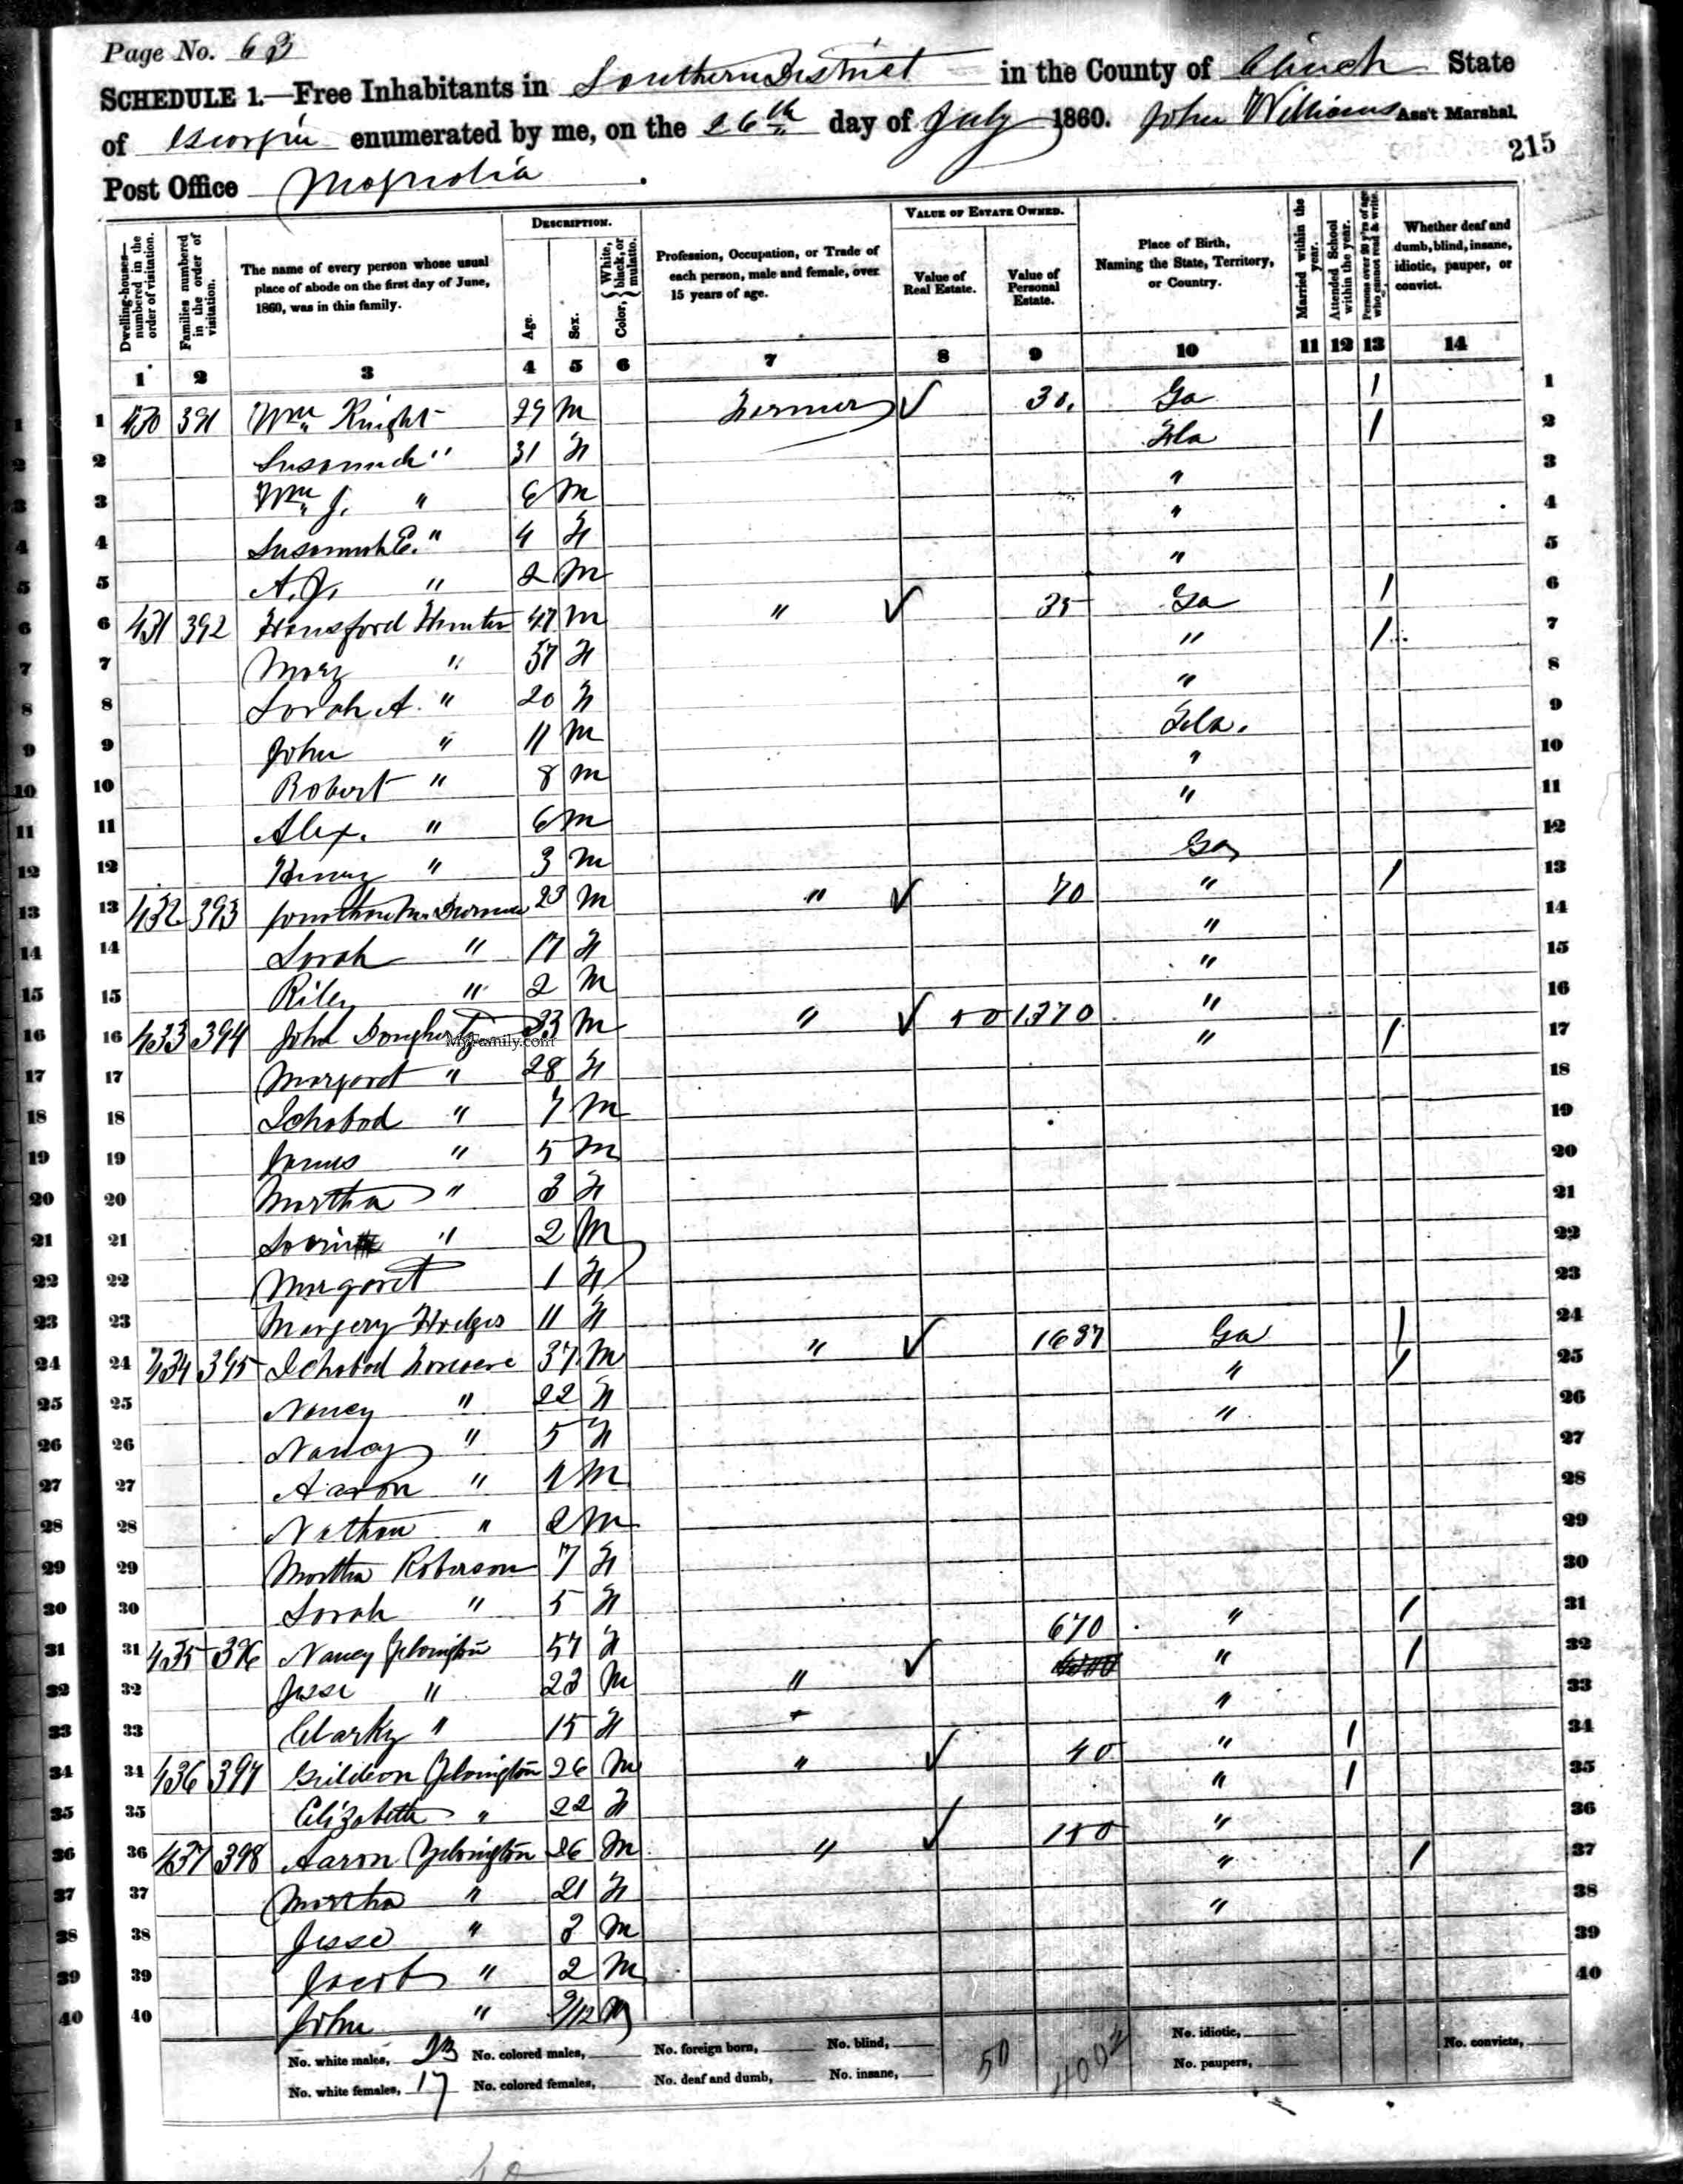 Page No. 63
SCHEDULE 1.—Free Inhabitants in Southern District in the County of Clinch State
of Georgia enumerated by me, on the 26th day of July 1860. John Williams Ass't Marshal.
215
Post Office Magnolia
Dwelling-houses—numbered in the order of visitation.
Families numbered in the order of visitation.
The name of every person whose usual place of abode on the first day of June, 1860, was in this family.
DESCRIPTION.
Age.
Sex.
Color, { White, black, or mulatto.
Profession, Occupation, or Trade of each person, male and female, over 15 years of age.
VALUE OF ESTATE OWNED.
Value of Real Estate.
Value of Personal Estate.
Place of Birth, Naming the State, Territory, or Country.
Married within the year.
Attended School within the year.
Persons over 20 y'rs of age who cannot read & write.
Whether deaf and dumb, blind, insane, idiotic, pauper, or convict.
1 2 3 4 5 6 7 8 9 10 11 12 13 14
1 430 391 Wm Knight 29 M Farmer ✓ 30. Ga / 1
2 Susannah " 31 F Fla / 2
3 Wm J. " 6 M " 3
4 Susannah E. " 4 F " 4
5 A. J. " 2 M " 5
6 431 392 Hansford Hunter 47 M " ✓ 35 Ga / 6
7 Mary " 37 F " / 7
8 Sarah A. " 20 F " 8
9 John " 11 M Fla. 9
10 Robert " 8 M " 10
11 Alex. " 6 M " 11
12 Henry " 3 M Ga 12
13 432 393 Jonathan 23 M " ✓ 70 " / 13
14 Sarah " 17 F " 14
15 Riley " 2 M " 15
16 433 394 John Dougherty 33 M " ✓ 50 1370 " 16
MyFamily.com
17 Margaret " 28 F " / 17
18 Ichabod " 7 M 18
19 James " 5 M 19
20 Martha " 3 F 20
21 " 2 M 21
22 Margaret 1 F 22
23 Margery Hodges 11 F 23
24 434 395 Ichabod 37 M " ✓ 1637 Ga / 24
25 Nancy " 22 F " / 25
26 Nancy " 5 F " 26
27 Aaron " 4 M 27
28 Nathan " 2 M 28
29 Martha Roberson 7 F 29
30 Sarah " 5 F 30
31 435 396 Nancy Yelvington 57 F 670 " / 31
32 Jesse " 23 M " ✓ " / 32
33 Clarky " 15 F " 33
34 436 397 Yelvington 26 M " ✓ 40 " / 34
35 Elizabeth " 22 F " / 35
36 437 398 Aaron Yelvington 26 M " ✓ 150 " 36
37 Martha " 21 F " / 37
38 Jesse " 3 M " 38
39 Jacob " 2 M 39
40 John " 9/12 M 40
No. white males, 23 No. colored males, No. foreign born, No. blind, 50 4002 No. idiotic, No. convicts,
No. white females, 17 No. colored females, No. deaf and dumb, No. insane, No. paupers,